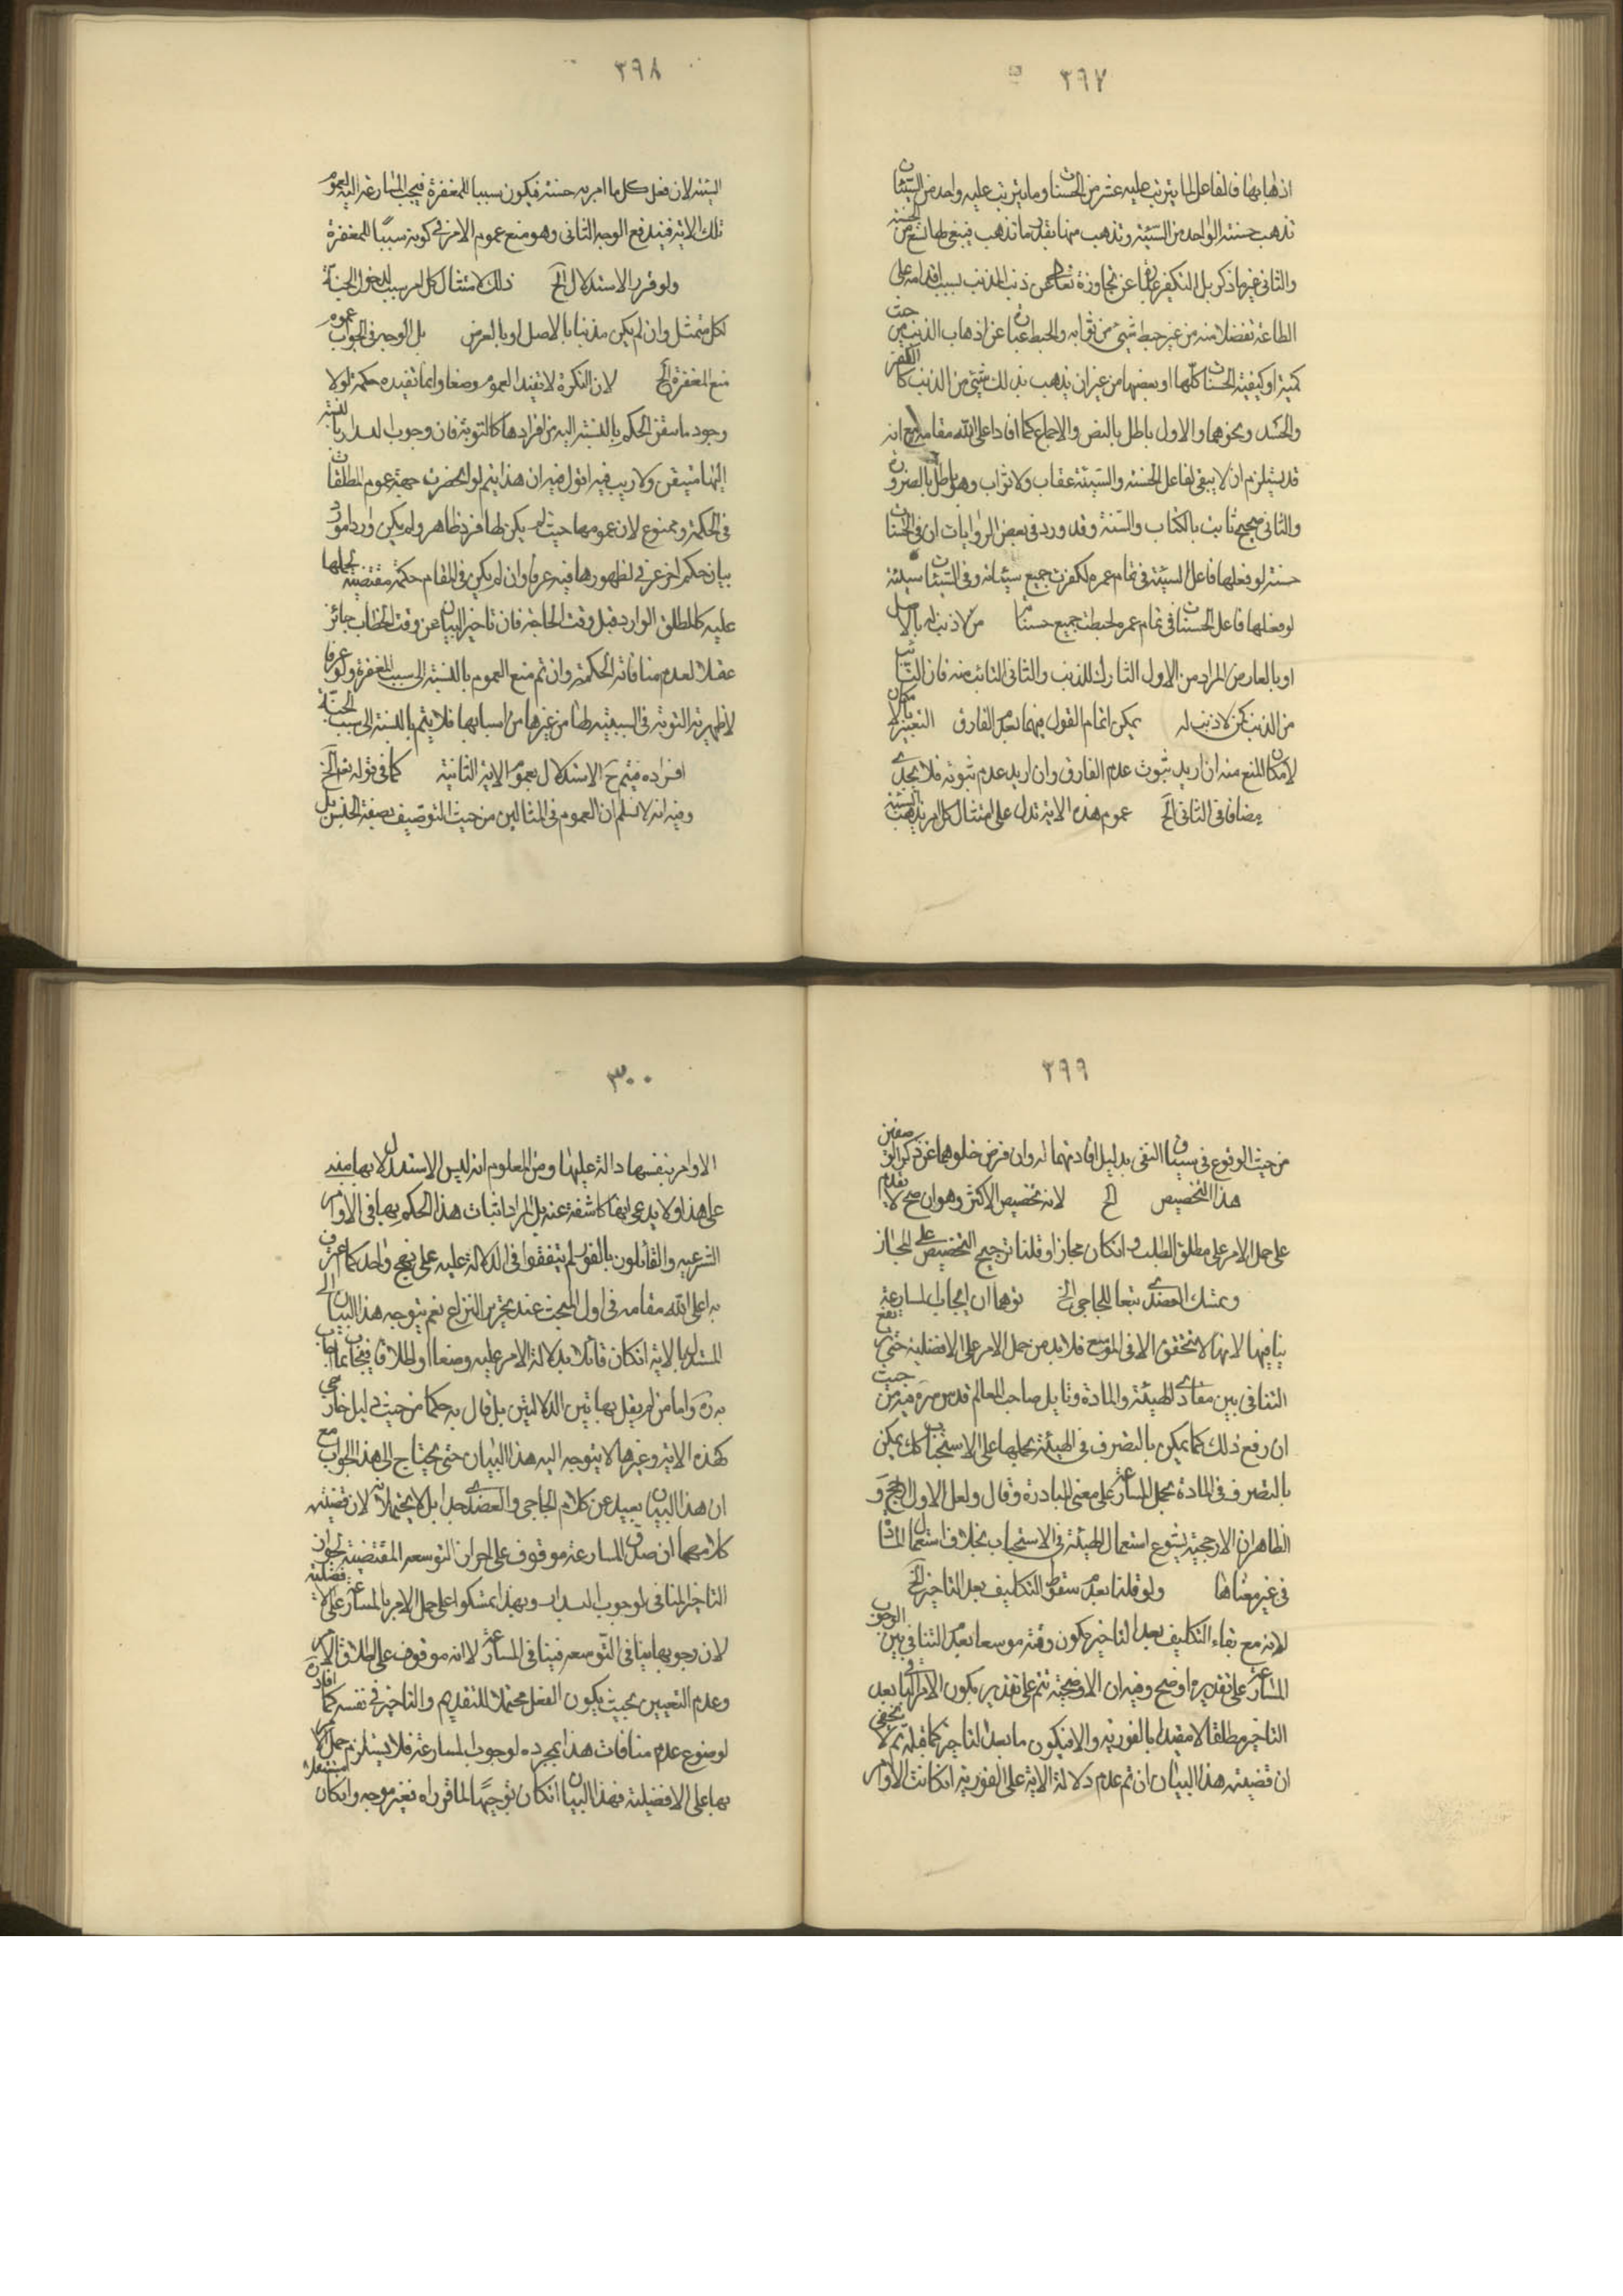 ٢٩٧
اذهابها فالفاعل لما يترتب عليه عشر من الحسنات وما يترتب عليه واحد من السيئات
تذهب حسنته الواحد من السيئة وتذهب منها بقدر ما تذهب فينبغي لها تسع من الحسنة
والثاني غير ما ذكر بل التكفير عبارة عن تجاوزه تعالى عن ذنب المذنب بسبب اقدامه على
الطاعة تفضلا منه من غير حبط شيء من ثوابه والحبط عبارة عن اذهاب الذنب من حيث
كمية او كيفية الحسنات كلها او بعضها من غير ان يذهب بذلك شيء من الذنب كالكفر
والحسد ونحوهما والاول باطل بالنص والاجماع كما افاد اعلى الله مقامه مع انه
قد يستلزم ان لا يبقى لفاعل الحسنة والسيئة عقاب ولا ثواب وهو باطل بالضرورة
والثاني صحيح ثابت بالكتاب والسنة وقد ورد في بعض الروايات ان في الحسنات
حسنة لو فعلها فاعل السيئة في تمام عمره لكفرت جميع سيئاته وفي السيئات سيئة
لو فعلها فاعل الحسنات في تمام عمره لحبطت جميع حسناته من لا ذنب له بالاصل
او بالعارض المراد من الاول التارك للذنب والثاني التائب منه فان التائب
من الذنب كمن لا ذنب له يمكن اتمام القول فيهما بعدم الفارق التعبير بالامكان
لامكان المنع منه ان اريد ثبوت عدم الفارق وان اريد عدم ثبوته فلا يجدي
مضافا في الثاني الخ عموم هذه الاية تدل على امتثال كل امر يذهب السيئة
٢٩٨
السيئة لان فعل كل ما امر به حسنة فيكون سببا للمغفرة فيجب المسارعة اليه لعموم
تلك الاية فيندفع الوجه الثاني وهو منع عموم الامر في كونه سببا للمغفرة
ولو قرر الاستدلال الخ ذلك لامتثال كل امر سبب لدخول الجنة
لكل ممتثل وان لم يكن مذنبا بالاصل او بالعرض بل الوجه في الجواب
منع المغفرة الخ لان النكرة لا تفيد العموم وضعا وانما تفيده حكمة لولا
وجود ما يتيقن الحكم بالنسبة اليه من افرادها كالتوبة فان وجوب البدار بالنسبة
اليها متيقن ولا ريب فيه اقول فيه ان هذا يتم لو انحصرت جهة عموم المطلقات
في الحكمة وممنوع لان عمومها حيث لم يكن لها فرد ظاهر ولم يكن واردا مورد
بيان حكم اخر عرفي لظهورها فيه عرفا وان لم يكن في المقام حكمة مقتضية لحملها
عليه كالمطلق الوارد قبل وقت الحاجة فان تاخير البيان عن وقت الخطاب جائز
عقلا لعدم منافاته الحكمة وان تم منع العموم بالنسبة الى سبب المغفرة ولو عرفا
لاظهرية التوبة في السببية لها من غيرها من اسبابها فلا يتم بالنسبة الى سبب الجنة
افراده فيتم ح الاستدلال بعموم الاية الثانية كما في قوله تعالى الخ
وفيه انه لا نسلم ان العموم في المثالين من حيث التوصيف بصفة الجنس بل
٢٩٩
من حيث الوقوع في سياق النفي بدليل افادتهما له وان فرض خلوهما عن ذكر الوصفين
هذا التخصيص الخ لانه تخصيص الاكثر وهو ان صح لا يقدم
على حمل الامر على مطلق الطلب وان كان مجازا وقلنا بترجيح التخصيص على المجاز
وتمسك العضدي تبعا للحاجبي الخ توهما ان ايجاب المسارعة
ينافيها لانها لا يتحقق الا في الموسع فلا بد من حمل الامر على الافضلية حتى يرتفع
التنافي بين مفادي الهيئة والمادة وتامل صاحب المعالم قدس سره فيه من حيث
ان رفع ذلك كما يمكن بالتصرف في الهيئة بحملها على الاستحباب كك يمكن
بالتصرف في المادة بحمل المسارعة على معنى المبادرة وقال ولعل الاول ارجح و
الظاهر ان الارجحية لشيوع استعمال الهيئة في الاستحباب بخلاف استعمال المادة
في غير معناها ولو قلنا بعدم سقوط التكليف بعد التاخير الخ
لانه مع بقاء التكليف بعد التاخير يكون وقته موسعا بعدم التنافي بين الوجوب
المسارعة على تقديره اوضح وفيه ان الاوضحية تتم على تقدير يكون الامر في ايها بعد
التاخير مطلقا لا مقيدا بالفورية والا فيكون ما بعد التاخير كما قبله ثم لا يخفى
ان قضية هذا البيان ان تم عدم دلالة الاية على الفورية ان كانت الاوامر
٣٠٠
الاوامر بنفسها دالة عليها ومن المعلوم انه ليس الاستدلال بها مبنيه
على هذا ولا يدعى انها كاشفة عنه بل المراد اثبات هذا الحكم بها في الاوامر
الشرعيه والقائلون بالفور لم يتفقوا في الدلالة عليه على نهج واحد كما اعترف
به اعلى الله مقامه في اول المبحث عند تحرير النزاع نعم يتوجه هذا البيان الى
المستدل بالاية ان كان قائلا بدلالة الامر عليه وضعا او اطلاقا فيجاب بما اجاب
به ره واما من لم يقل بهاتين الدلالتين بل قال به حكما من حيث دليل خارجي
كهذه الاية وغيرها لا يتوجه اليه هذا البيان حتى يحتاج الى هذا الجواب مع
ان هذا البيان بعيد عن كلام الحاجبي والعضدي جدا بل لا يحتملانه لان قضية
كلامهما ان صدق المسارعة موقوف على احراز التوسعه المقتضية لجواز
التاخير المنافي لوجوب البدار وبهذا تمسكوا على حمل الامر بالمسارعة على الافضلية
لان وجوبها ينافي التوسعه فينافي المسارعة لا انه موقوف على اطلاق الامر
وعدم التعيين بحيث يكون الفعل محتملا للتقديم والتاخير في نفسه كما افاده
لوضوح عدم منافات هذا بمجرده لوجوب المسارعة فلا يستلزم حمل الامر
بها على الافضلية فهذا البيان ان كان توجيها لما قرراه فغير موجه وان كان مستقلا